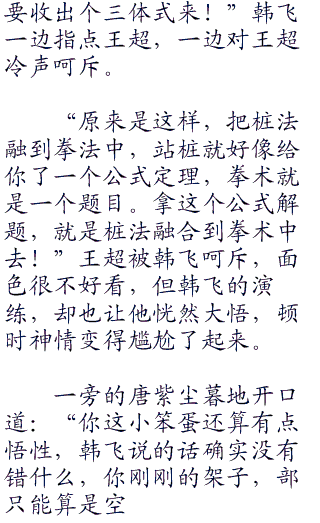 要收出个三体式来！”韩飞
一边指点王超，一边对王超
冷声呵斥。
“原来是这样，把桩法
融到拳法中，站桩就好像给
你了一个公式定理，拳术就
是一个题目。拿这个公式解
题，就是桩法融合到拳术中
去！”王超被韩飞呵斥，面
色很不好看，但韩飞的演
练，却也让他恍然大悟，顿
时神情变得尴尬了起来。
一旁的唐紫尘蓦地开口
道：“你这小笨蛋还算有点
悟性，韩飞说的话确实没有
错什么，你刚刚的架子，部
只能算是空